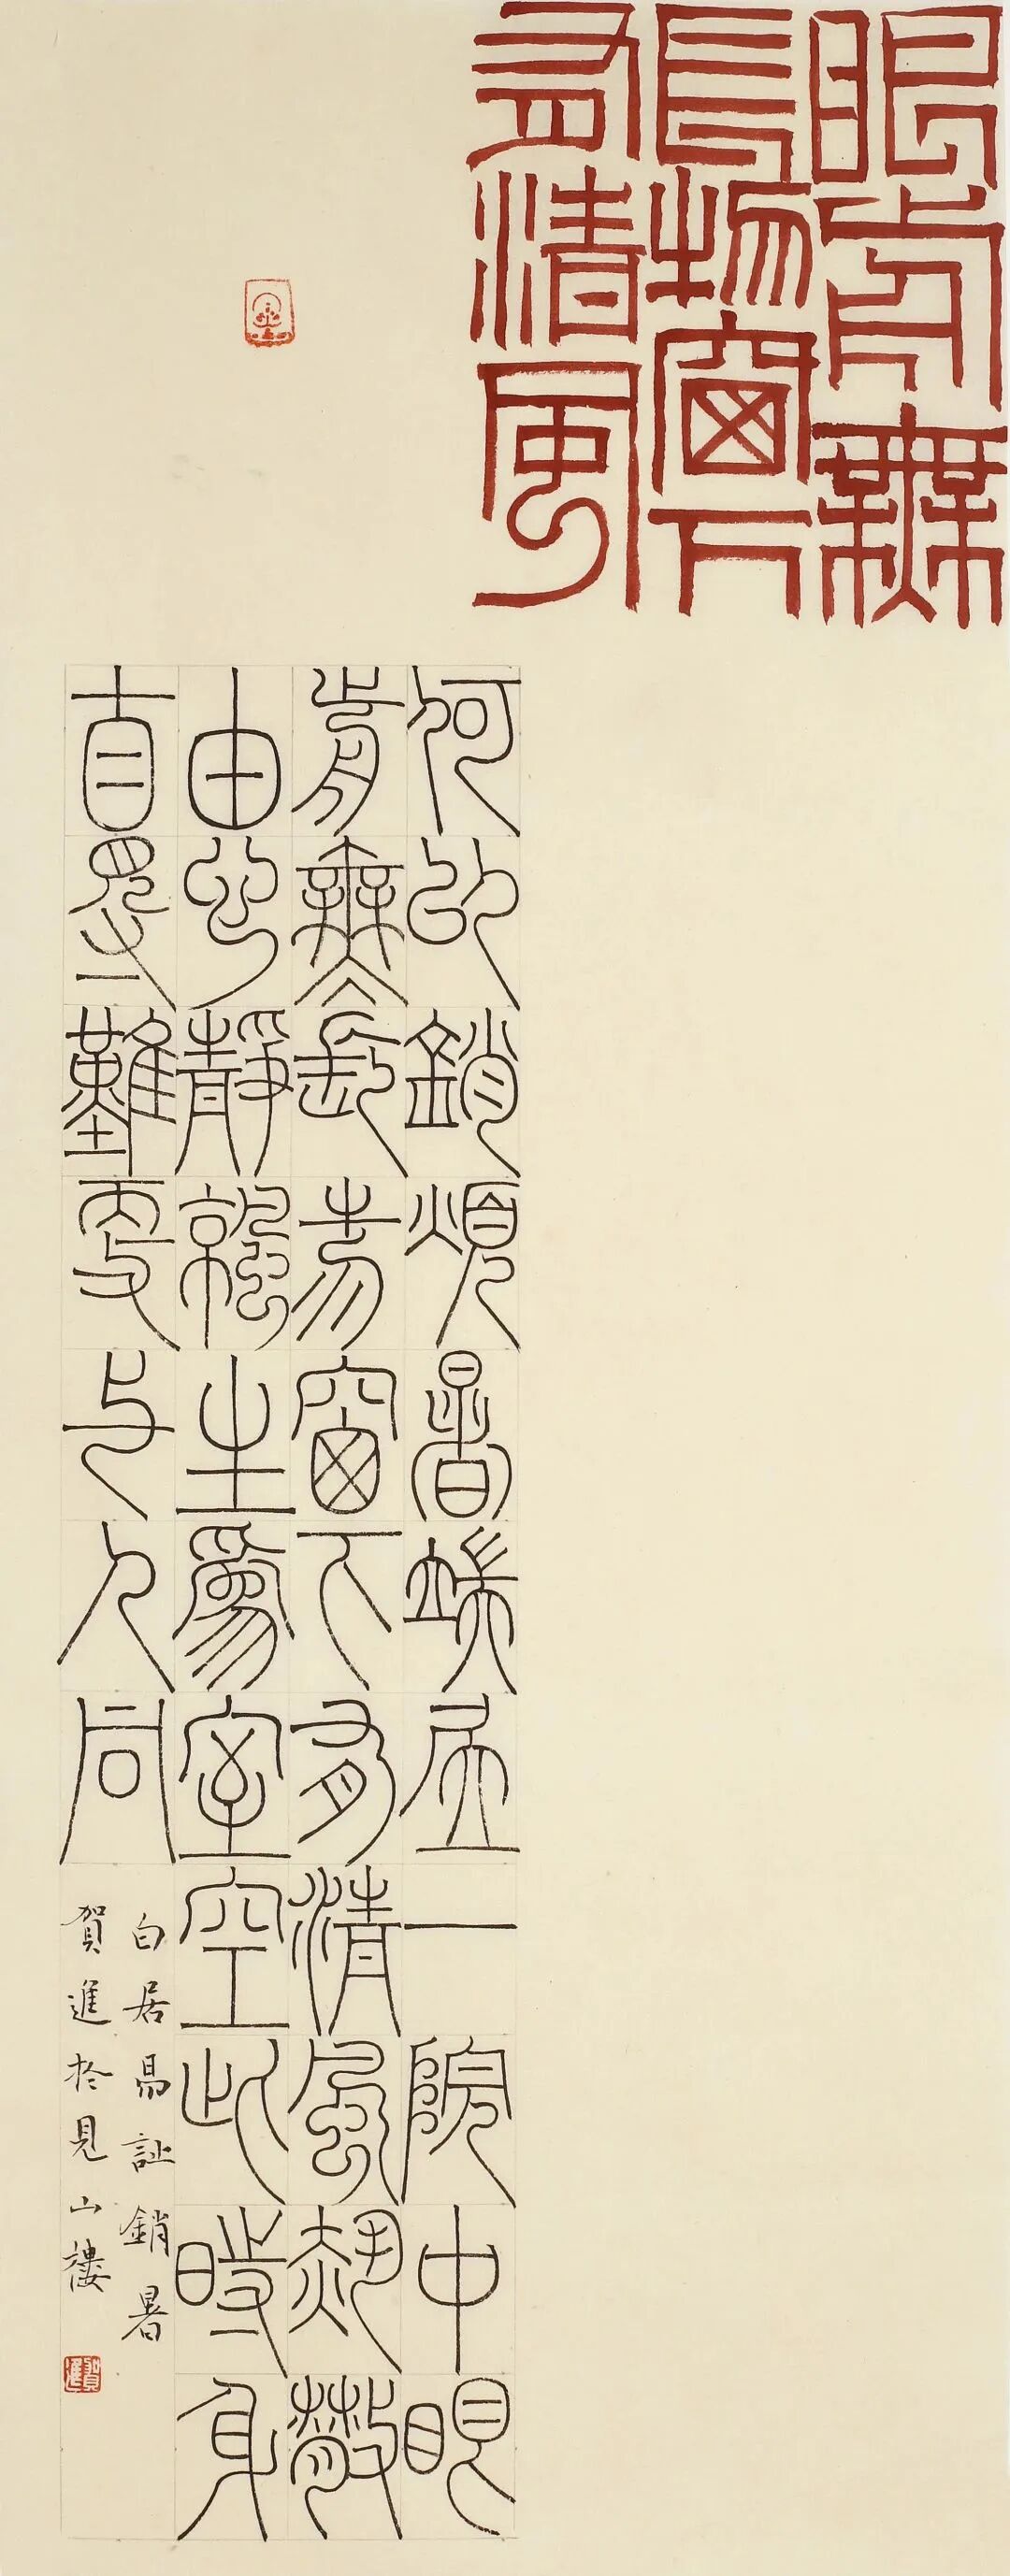 眼前無
長物窗下
有清風
何以銷煩暑端居一院中眼
前無長物窗下有清風熱散
由心靜涼生為室空此時身
自得難更与人同
白居易詩銷暑
賀進於見山樓
賀進